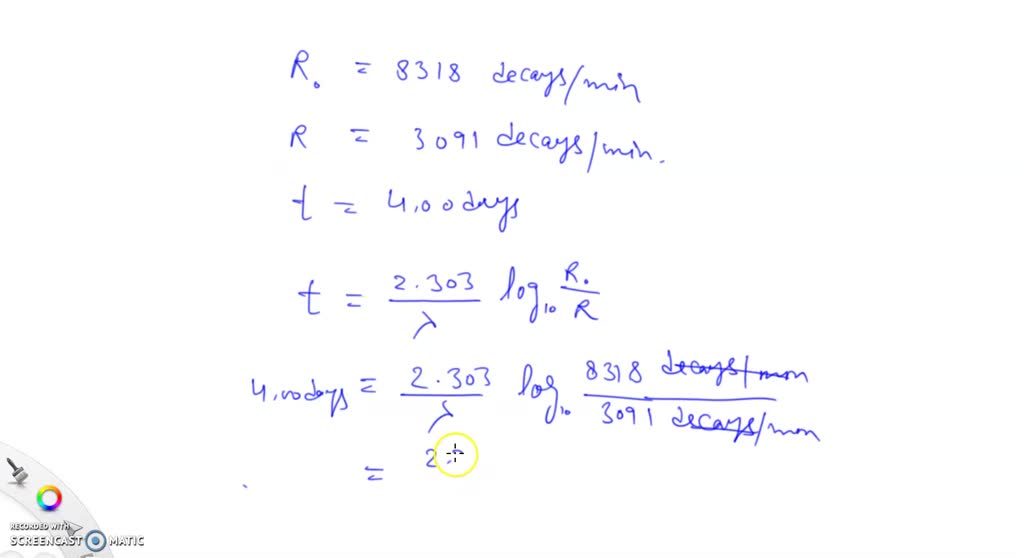 R₀ = 8318 decays/min
R = 3091 decays/min.
t = 4.00 days
t = 2.303/λ log₁₀ R₀/R
4.00 days = 2.303/λ log₁₀ 8318 decays/mon / 3091 decays/mon
= 2.
RECORDED WITH
SCREENCAST MATIC